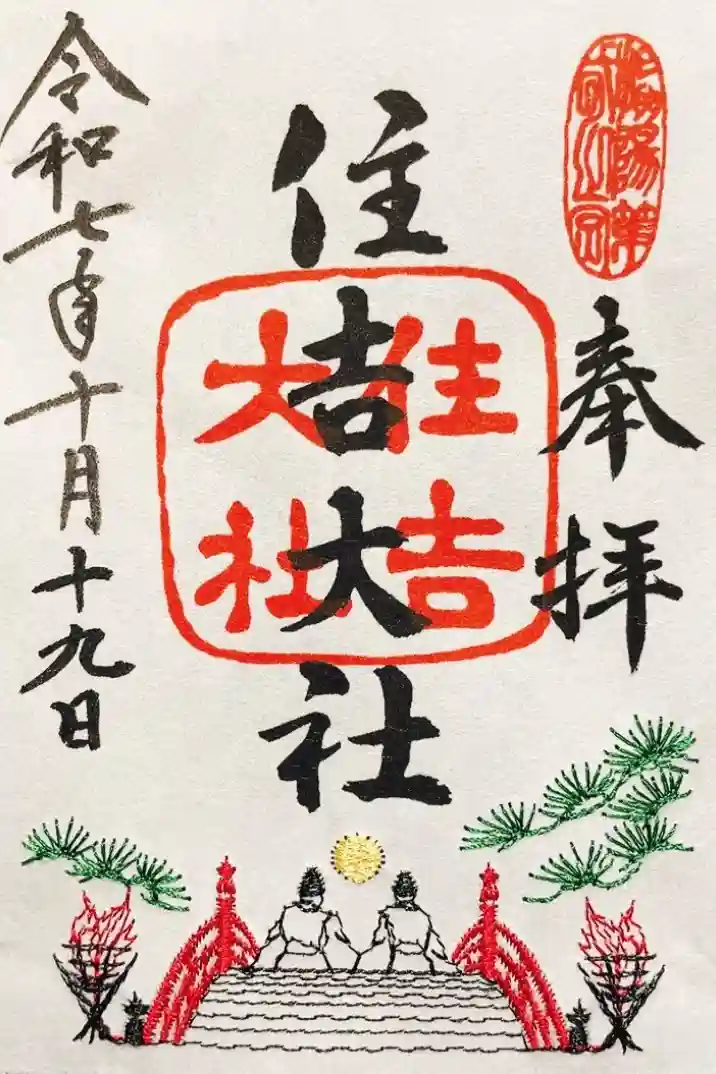 奉拝
住吉大社
住吉
大社
令和七年十月十九日